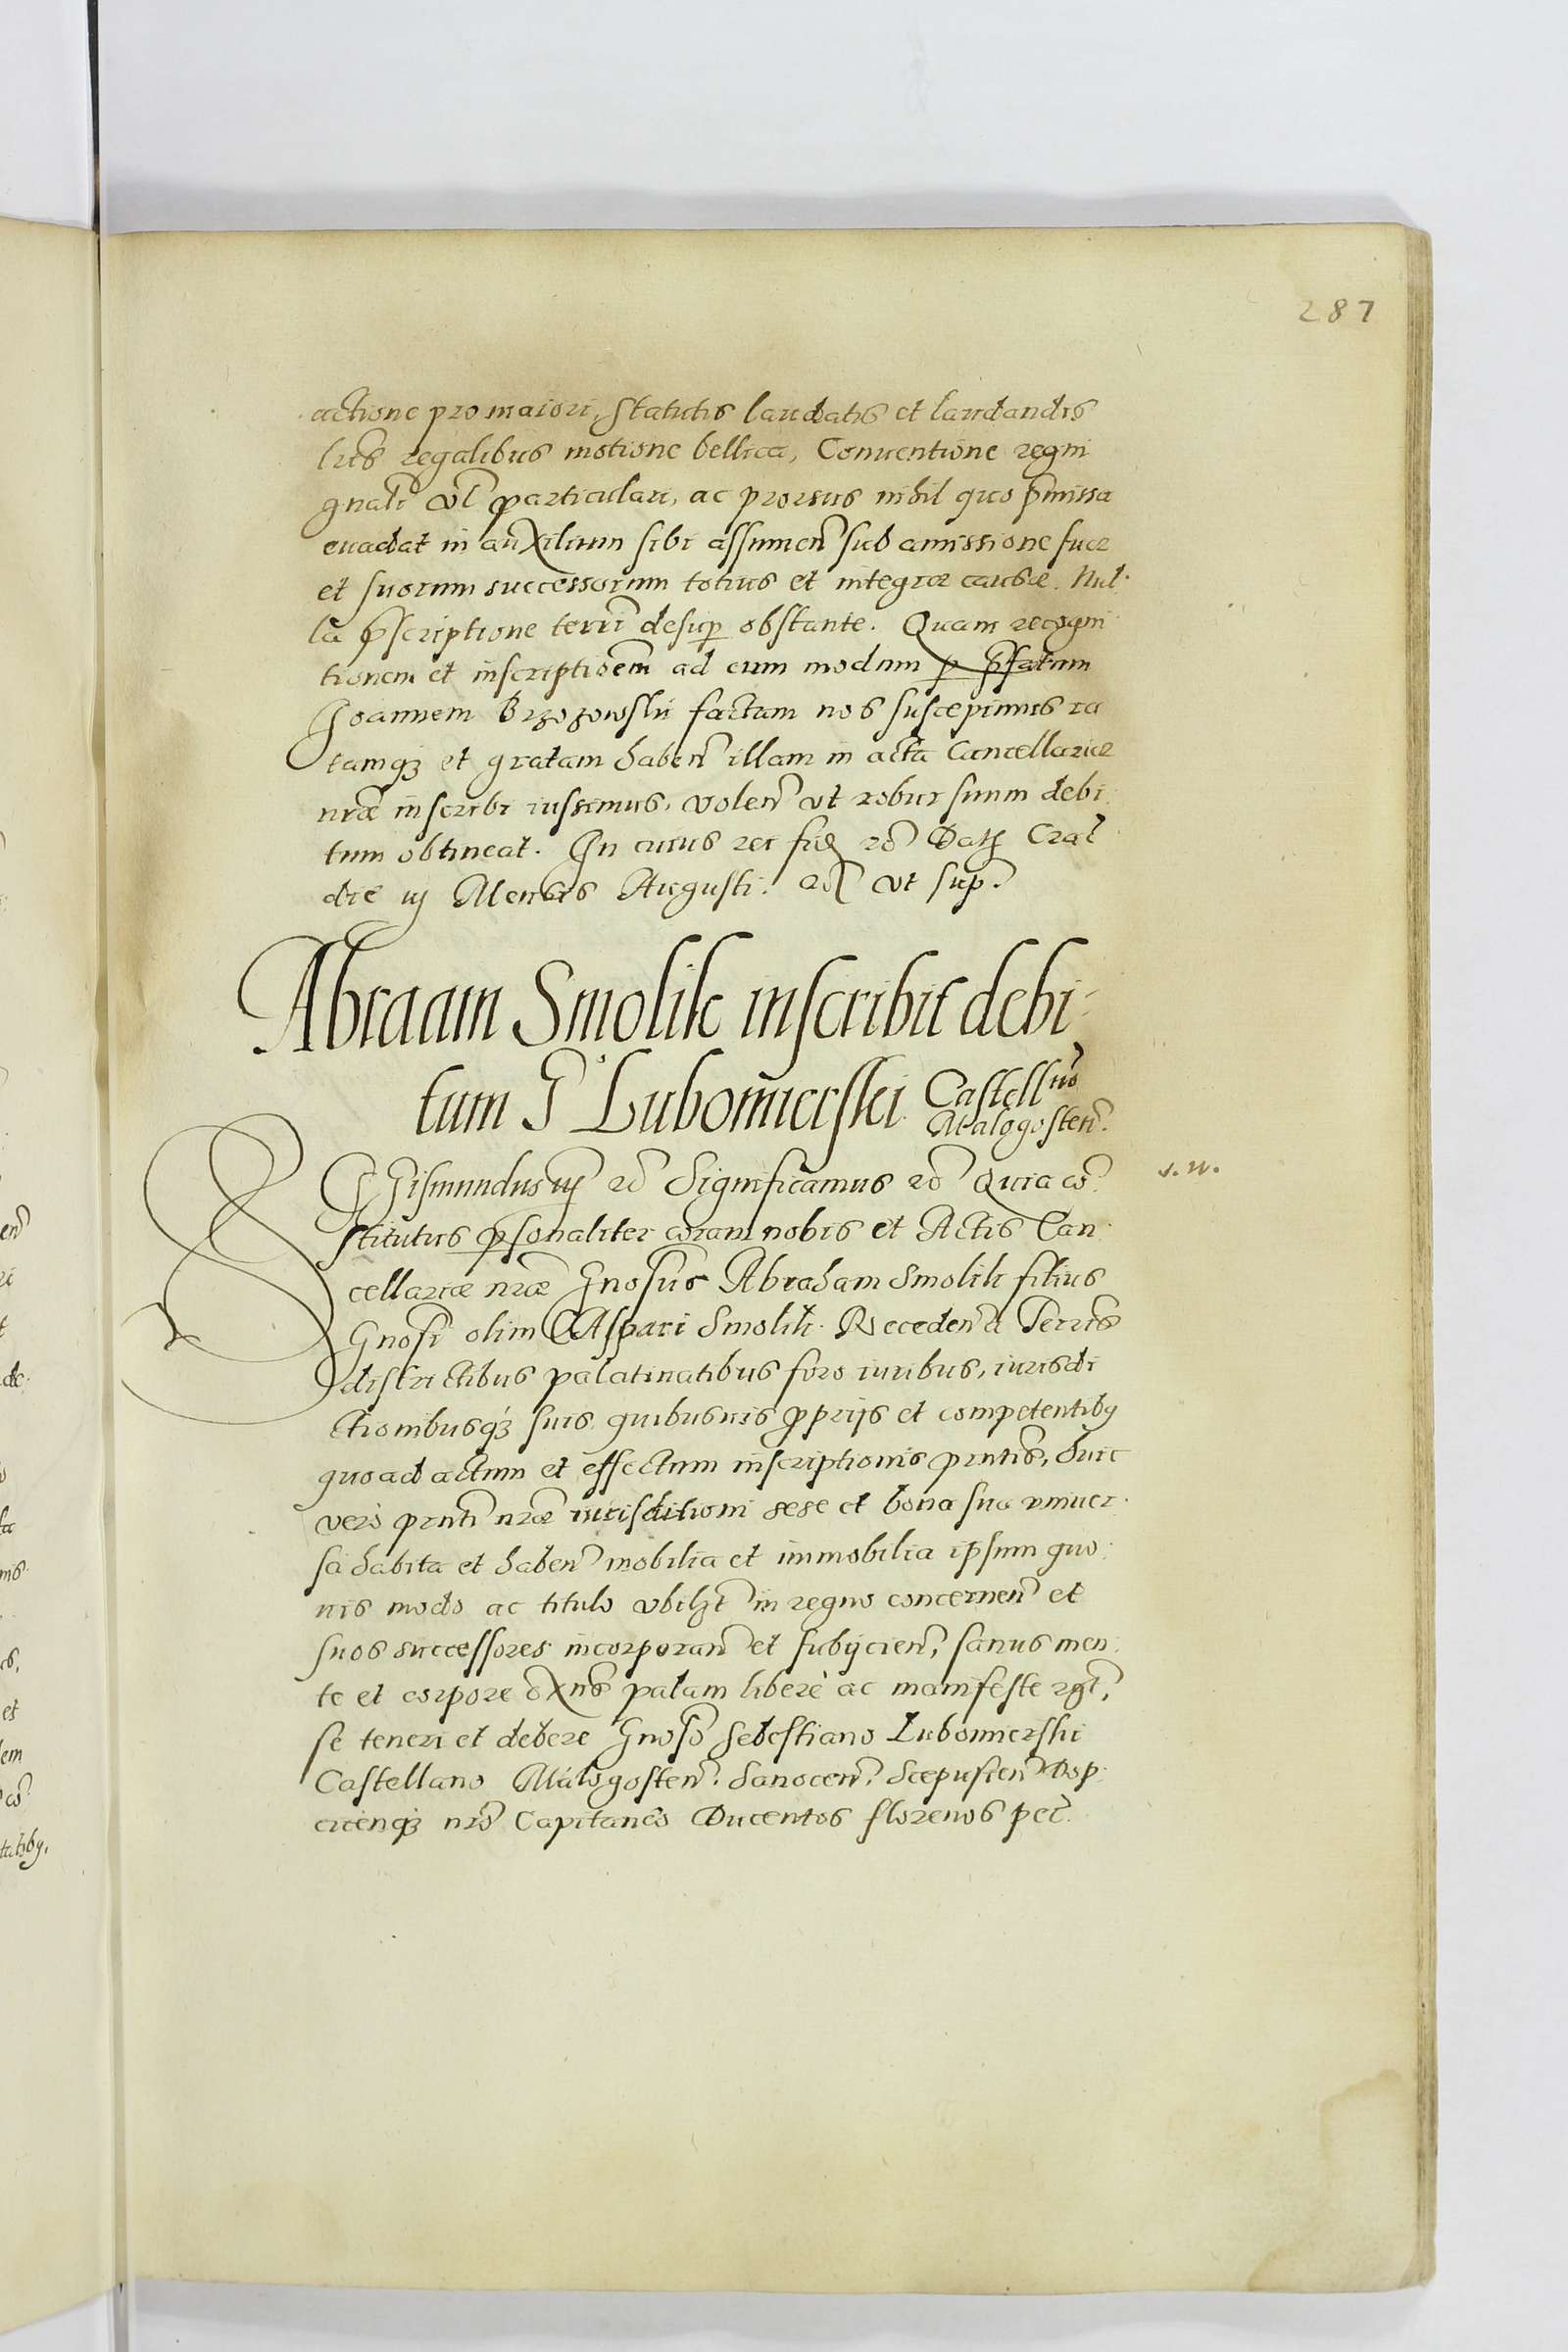 287
actione pro maiori, statutis laudatis et laudandis
lris regalibus motione bellica, Conventione regni
gnali vel particulari, ac prorsus nihil quo pmissa
evadat in auxilium sibi assumen sub amissione suae
et suorum successorum totius et integrae causae. Nul
la pscriptione terri desup obstante. Quam recogni
tionem et inscriptionem ad eum modum p pfatum
Joannem Brzozowski factam nos suscepimus ra
tamq; et gratam haben illam in acta Cancellariae
nrae inscribi iussimus, volen ut robur suum debi
tum obtineat. In cuius rei fid Dat Crac
die iij Mensis Augusti. ut sup.
Abraam Smolik inscribit debi-
tum G Lubomierski Castellno
Malogosten.
s. w.
Sigismundus iij Significamus Quia co
stitutus psonaliter coram nobis et Actis Can
cellariae nrae Gnosus Abraham Smolik filius
Gnosi olim CAspari Smolik. Receden a Terris
districtibus palatinatibus foro iuribus, iurisdi
ctionibusq; suis quibusuis pprijs et competentiby
quoad actum et effectum inscriptionis pntis, huic
verò pnti nrae iurisditioni sese et bona sua vniuer
sa habita et haben mobilia et immobilia ipsum quo
uis modo ac titulo vbilzt in regno concernen et
suos successores incorporan et subijcien, sanus men
te et corpore exns palam liberè ac manifeste rgt,
se teneri et debere Gnoso Sebestiano Lubomierski
Castellano Malogosten. Sanocen. Scepusien Dop
cicenq; nro Capitaneo Ducentos florenos pec